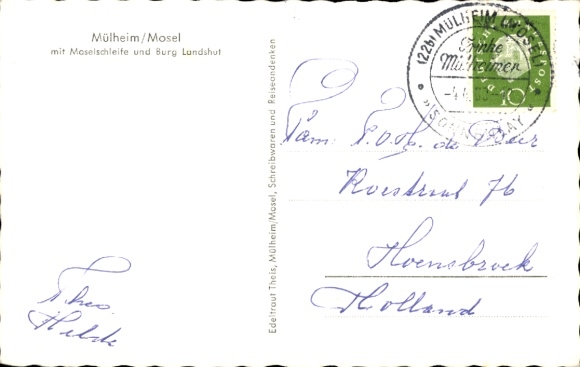 Mülheim/Mosel
mit Moselschleife und Burg Landshut
(22b) MÜLHEIM (MOSEL)
Trinke
Mülheimer
"SONNENLAY"
10
Edeltraut Theis, Mülheim/Mosel, Schreibwaren und Reiseandenken
Fam. P. v. d. de
76
Hoensbroek
Holland
Theo.